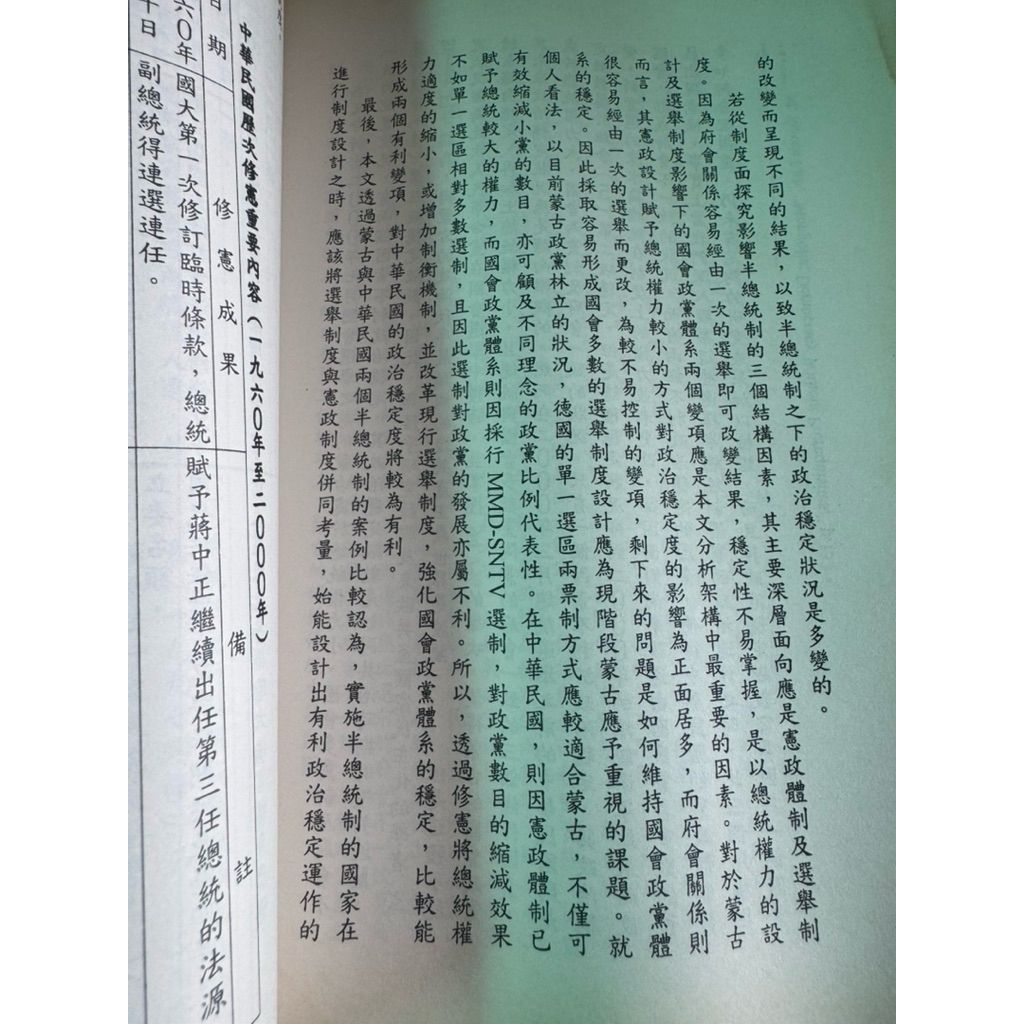 的改變而呈現不同的結果，以致半總統制之下的政治穩定狀況是多變的。
若從制度面探究影響半總統制的三個結構因素，其主要深層面向應是憲政體制及選舉制
度。因為府會關係容易經由一次的選舉即可改變結果，穩定性不易掌握，是以總統權力的設
計及選舉制度影響下的國會政黨體系兩個變項應是本文分析架構中最重要的因素。對於蒙古
而言，其憲政設計賦予總統權力較小的方式對政治穩定度的影響為正面居多，而府會關係則
很容易經由一次的選舉而更改，為較不易控制的變項，剩下來的問題是如何維持國會政黨體
系的穩定。因此採取容易形成國會多數的選舉制度設計應為現階段蒙古應予重視的課題。就
個人看法，以目前蒙古政黨林立的狀況，德國的單一選區兩票制方式應較適合蒙古，不僅可
有效縮減小黨的數目，亦可顧及不同理念的政黨比例代表性。在中華民國，則因憲政體制已
賦予總統較大的權力，而國會政黨體系則因採行 MMD-SNTV 選制，對政黨數目的縮減效果
不如單一選區相對多數選制，且因此選制對政黨的發展亦屬不利。所以，透過修憲將總統權
力適度的縮小，或增加制衡機制，並改革現行選舉制度，強化國會政黨體系的穩定，比較能
形成兩個有利變項，對中華民國的政治穩定度將較為有利。
最後，本文透過蒙古與中華民國兩個半總統制的案例比較認為，實施半總統制的國家在
進行制度設計之時，應該將選舉制度與憲政制度併同考量，始能設計出有利政治穩定運作的
中華民國歷次修憲重要內容（一九六〇年至二〇〇〇年）
日期
修憲成果
備註
六〇年
十日
國大第一次修訂臨時條款，總統
副總統得連選連任。
賦予蔣中正繼續出任第三任總統的法源